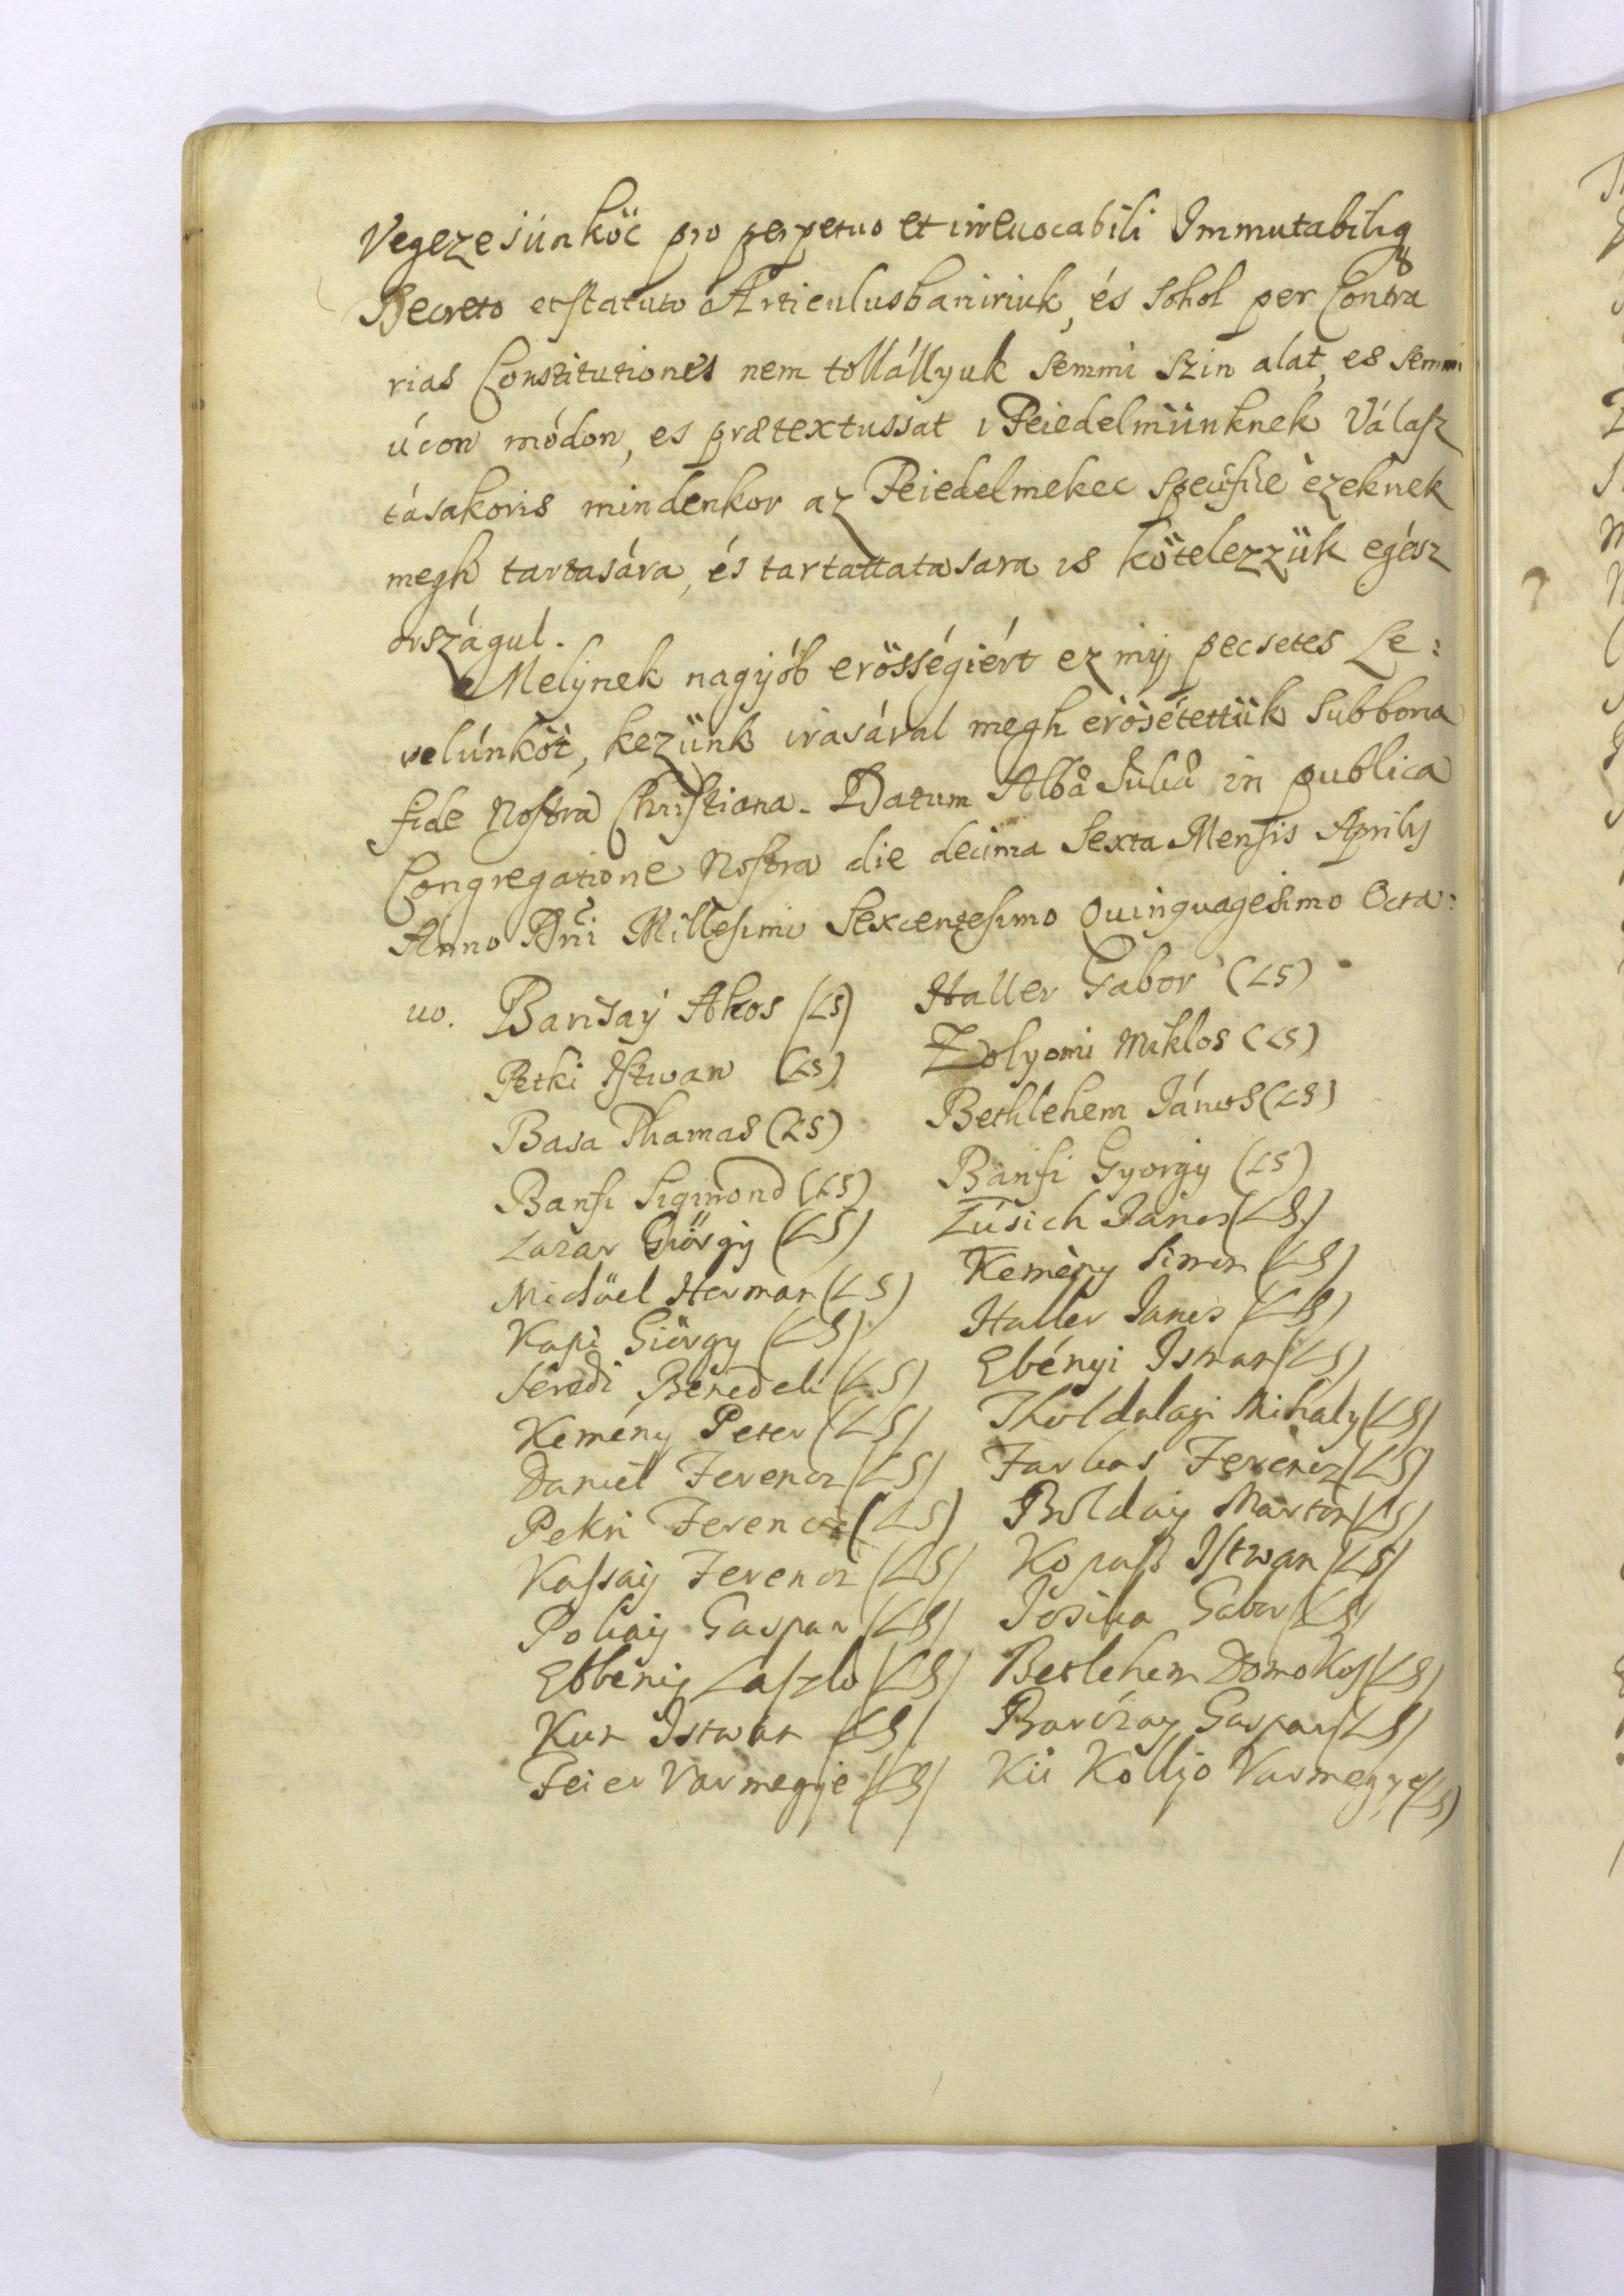 Vegezesünköt pro perpetuo et irreuocabili Immutabiliq
Decreto et statuto Articulusban iriuk, és sohol per Contra
rias Constitutiones nem tollállyuk semmi szin alat, es semmi
úton módon, es prætextussat Feiedelmünknek Válasz
tásakoris mindenkor az Feiedelmeket specifice ezeknek
megh tartasára, és tartattatasara is kötelezzük egész
országul.
Melynek nagyób erősségiért ez mij pecsetes Le:
velúnköt, kezünk irasával megh erősétettük Sub bona
fide Nostra Christiana. Datum Albå Juliå in publica
Congregatione Nostra die decima Sexta Mensis Aprilis
Anno Dni Millesimo Sexcentesimo Quinquagesimo Octa:
uo. Barisaÿ Akos (LS) Haller Gabor (LS)
Petki Istwan (LS) Zolyomi Miklos (LS)
Basa Thamas (LS) Bethlehem János (LS)
Banfi Sigmond (LS) Bánfi Gyorgy (LS)
Lazar Giörgy (LS) Lúsich Janos (LS)
Michäel Herman (LS) Kemèny Simon (LS)
Kapi Giörgy (LS) Haller Janos (LS)
Serédi Benedek (LS) Ebényi Istwan (LS)
Kemény Peter (LS) Tholdalagi Mihaly (LS)
Daniel Ferencz (LS) Farkas Ferencz (LS)
Pekri Ferencz (LS) Boldaij Marton (LS)
Kassaij Ferencz (LS) Kopass Istwan (LS)
Gaspar (LS) Josika Gabor (LS)
Ebbenij Laszlo (LS) Betlehem Domokos (LS)
Kun Istwan (LS) Barczay Gaspar (LS)
Feier Varmegyje (LS) Kü Kollyo Varmegye (LS)